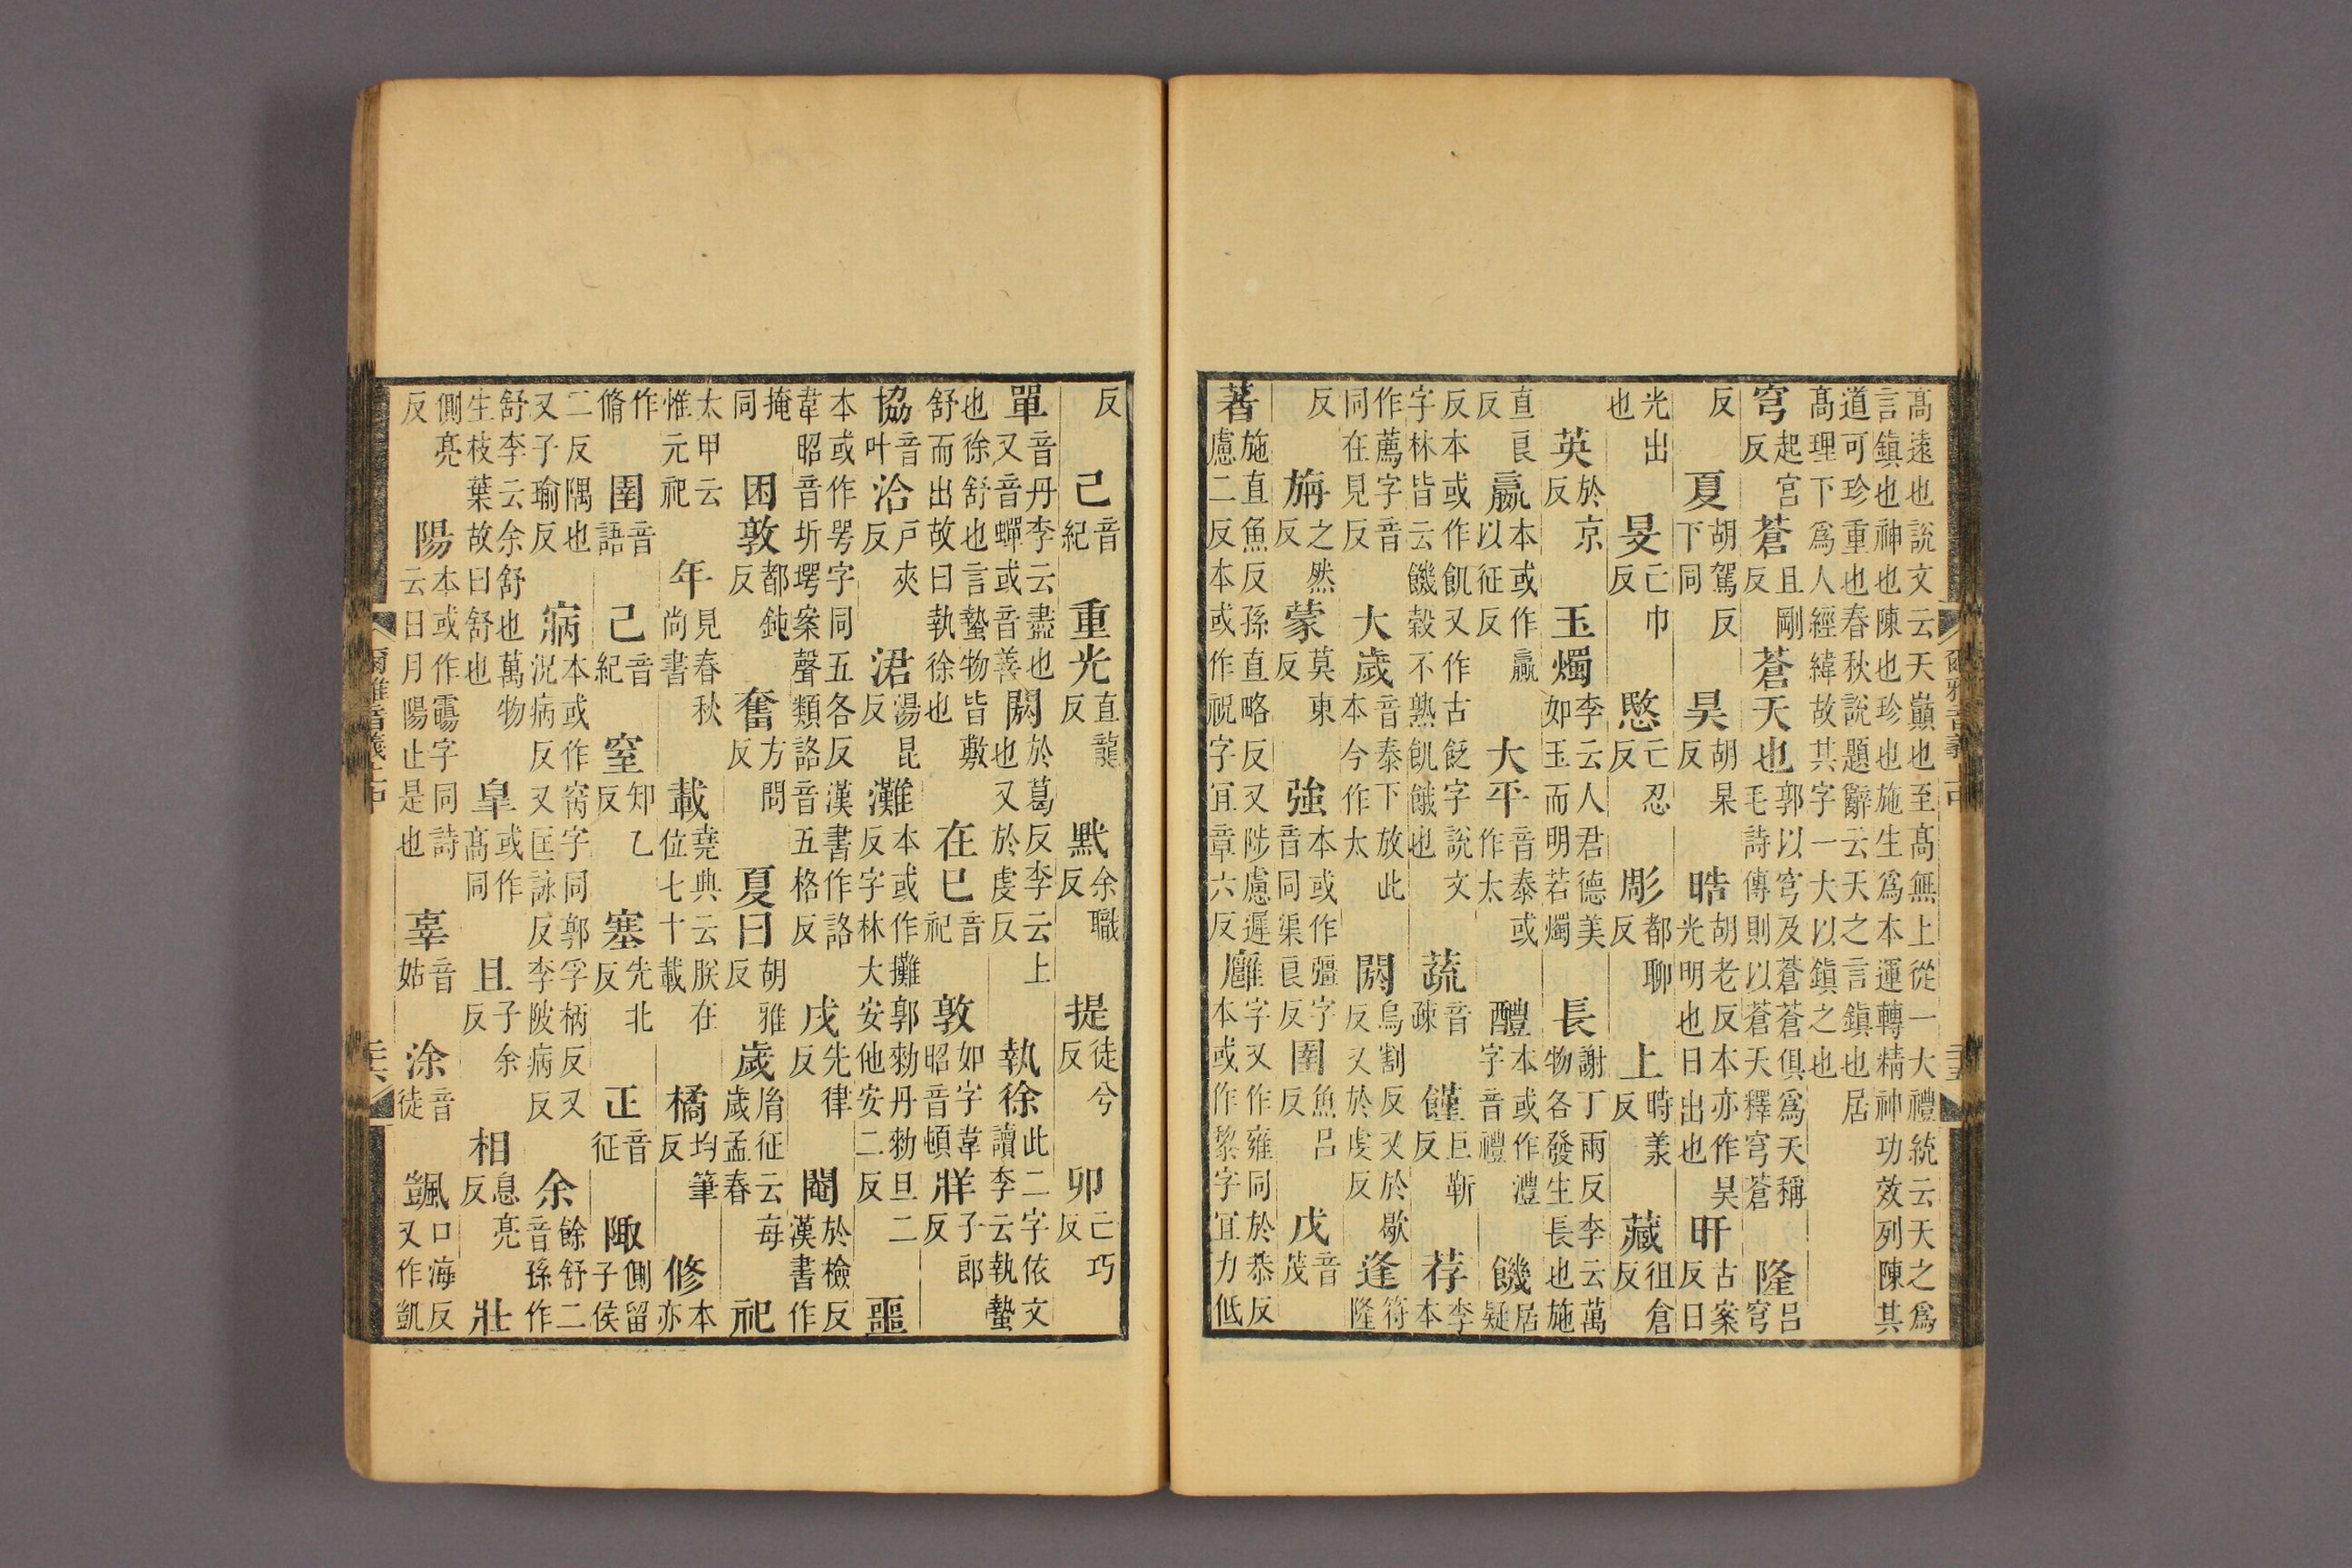 髙遠也說文云天巔也至髙無上從一大禮統云天之爲言鎮也神也陳也珍也施生爲本運轉精神功效列陳其
道可珍重也春秋說題辭云天之言鎮也居髙理下爲人經緯故其字一大以鎮之也
穹起宮反蒼且剛反蒼天也郭以穹及蒼蒼俱爲天稱毛詩傳則以蒼天釋穹蒼隆吕穹
反夏胡駕反下同昊胡杲反晧胡老反本亦作昊光明也日出也旰古案反日
光出也旻亡巾反愍亡忍反彫都聊反上時羕反藏徂倉反
英於京反玉燭李云人君德美如玉而明若燭長謝丁兩反李云萬物各發生長也施
直良反嬴本或作贏以征反大平音泰或作太醴本或作澧字音禮饑居疑
反本或作飢又作古字說文字林皆云饑穀不熟飢餓也蔬音疎饉巨靳反荐李本
作薦字音同在見反大歲音泰下放此本今作太閼烏割反又於歇反又於虔反逢符隆
反旃之然反蒙莫東反強本或作彊字音同渠良反圉魚吕反戊音茂
著施直魚反孫直略反又陟慮遲慮二反本或作祝字宜章六反雝字又作雍同於恭反本或作黎字宜力低
爾雅音義上中
反己音紀重光直龍反默余職反提徒兮反卯亡巧反
單音丹李云盡也又音蟬或音善閼於葛反李云上也又於虔反執徐此二字依文讀李云執蟄
也徐舒也言蟄物皆敷舒而出故曰執徐也在巳音祀敦如字韋昭音頓牂子郎反
協音叶洽戸夾反涒湯昆反灘本或作攤郭勑丹勑旦二反字林大安他安二反噩
本或作咢字同五各反漢書作詻韋昭音圻堮案聲類詻音五格反戌先律反閹於檢反漢書作
掩同困敦都鈍反奮方問反夏曰胡雅反歲胎征云每歲孟春祀
太甲云惟元祀年見春秋尚書載堯典云朕在位七十載橘均筆反修本亦
作脩圉音語己音紀窒知乙反塞先北反正音征陬側留子侯
二反隅也又子瑜反寎本或作窉字同郭孚柄反又況病反又匡詠反李陂病反余餘舒二音孫作
舒李云余舒也萬物生枝葉故曰舒也皐或作髙同且子余反相息亮反壯
側亮反陽本或作霷字同詩云日月陽止是也辜音姑涂音徒颽口海反又作凱
爾雅音義上中